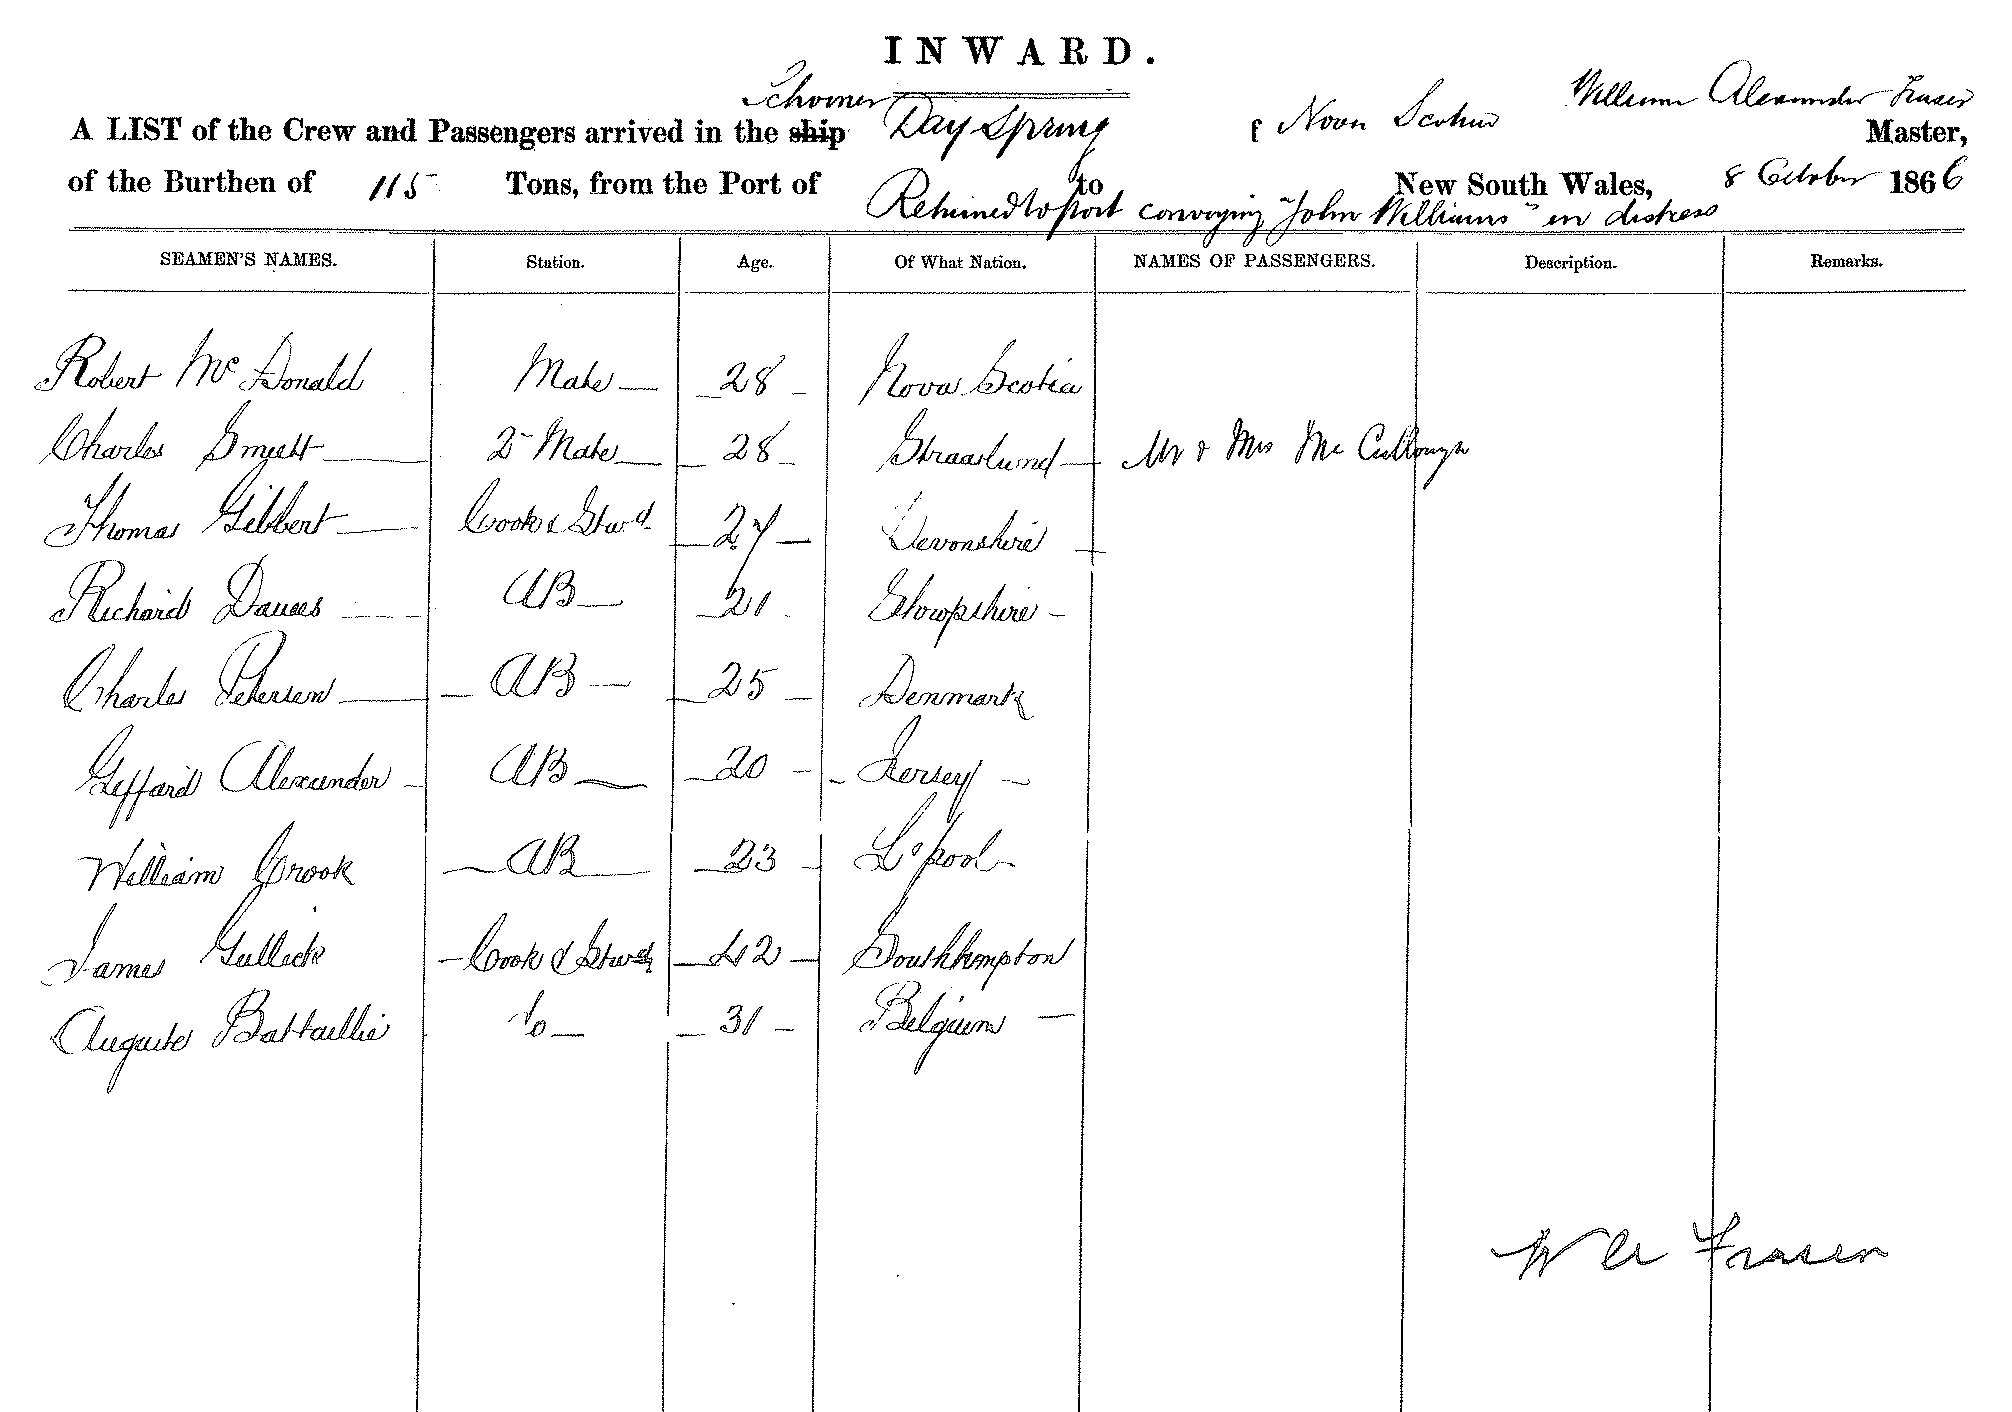 INWARD.
Schooner
A LIST of the Crew and Passengers arrived in the ship Day Spring of Nova Scotia William Alexander Fraser Master,
of the Burthen of 115 Tons, from the Port of to New South Wales, 8 October 1866
Returned to port conveying "John Williams" in distress
SEAMEN'S NAMES. Station. Age. Of What Nation. NAMES OF PASSENGERS. Description. Remarks.
Robert McDonald Mate 28 Nova Scotia
Charles 2 Mate 28 Straaslund Mr & Mrs McCullough
Thomas Gibbert Cook & Stwd 27 Devonshire
Richard Davies AB 21 Showpshire
Charles Petersen AB 25 Denmark
Geffard Alexander AB 20 Jersey
William Crook AB 23 L'pool
James Gullick Cook & Stwd 42 Southhmpton
Auguste Battaillie Do 31 Belgium
W A Fraser